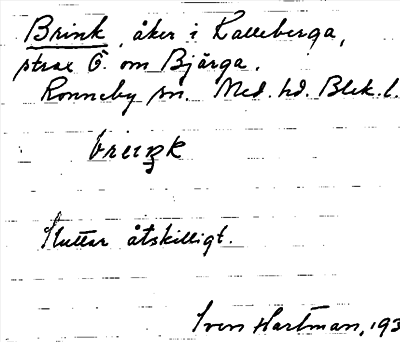 Brink, åker i Kalleberga,
strax Ö. om Bjärga.
Ronneby sn. Med. hd. Blek. l.
briŋk
Sluttar åtskilligt.
Iven Hartman, 193